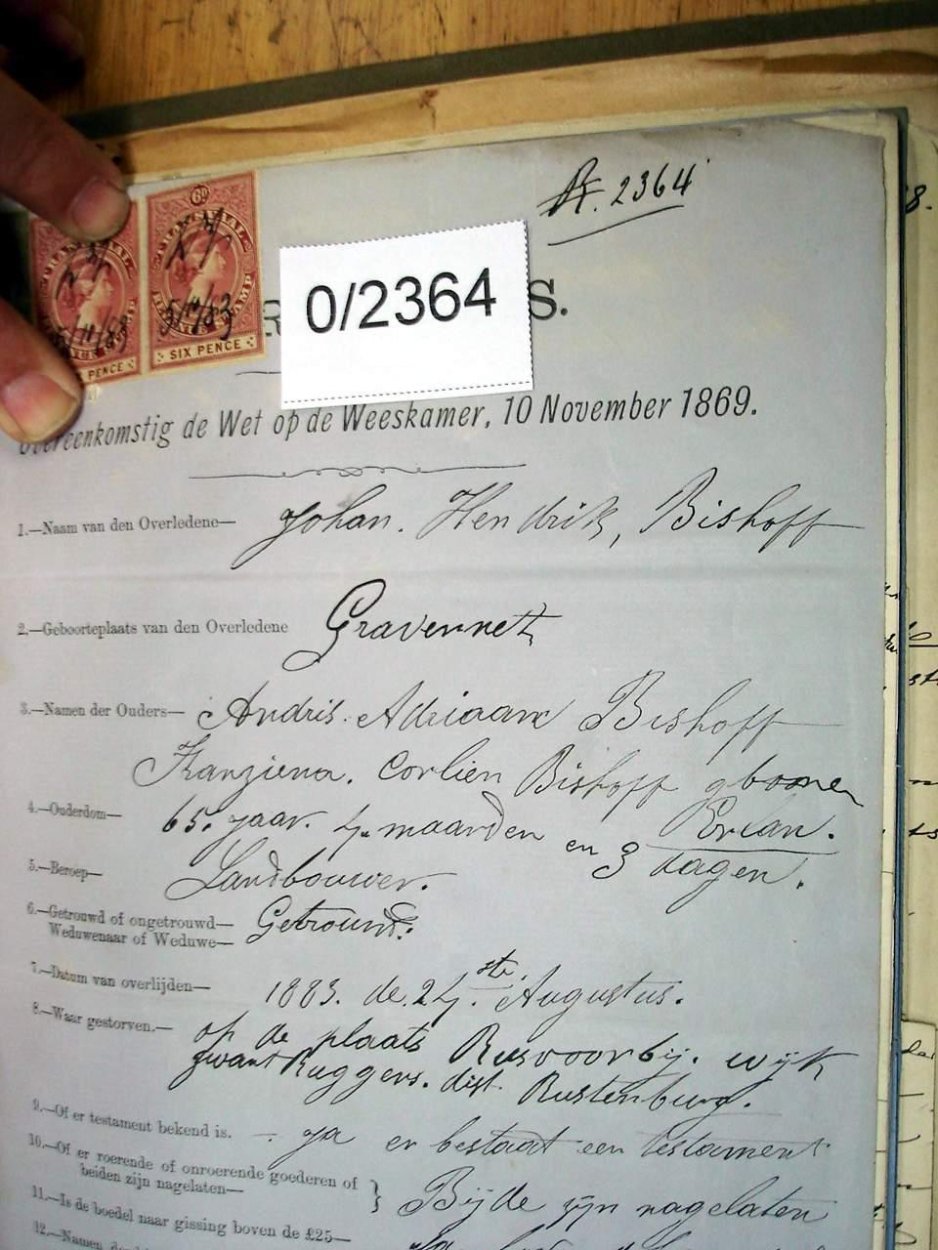 N. 2364
TRANSVAAL
6D
REVENUE STAMP
5/11/83
SIX PENCE
5/11/83
PENCE
0/2364
S.
Overeenkomstig de Wet op de Weeskamer, 10 November 1869.
1.—Naam van den Overledene— Johan. Hendrik, Bishoff
2.—Geboorteplaats van den Overledene Gravennet
3.—Namen der Ouders— Andris. Adriaan Bishoff
Franziena. Corlien Bishoff gboonen
4.—Ouderdom— 65. jaar. 4. maarden en 3 dagen.
5.—Beroep— Landbouwer.
6.—Getrouwd of ongetrouwd—
Weduwenaar of Weduwe— Getrouwd.
7.—Datum van overlijden— 1883. de. 24ste. Augustus.
8.—Waar gestorven.— op de plaats Rusvoorbij. wijk
zwartRuggens. dist. Rustenburg.
9.—Of er testament bekend is. – ja er bestaat een testament
10.—Of er roerende of onroerende goederen of
beiden zijn nagelaten— } Bijde zijn nagelaten
11.—Is de boedel naar gissing boven de £25—
12.—Namen